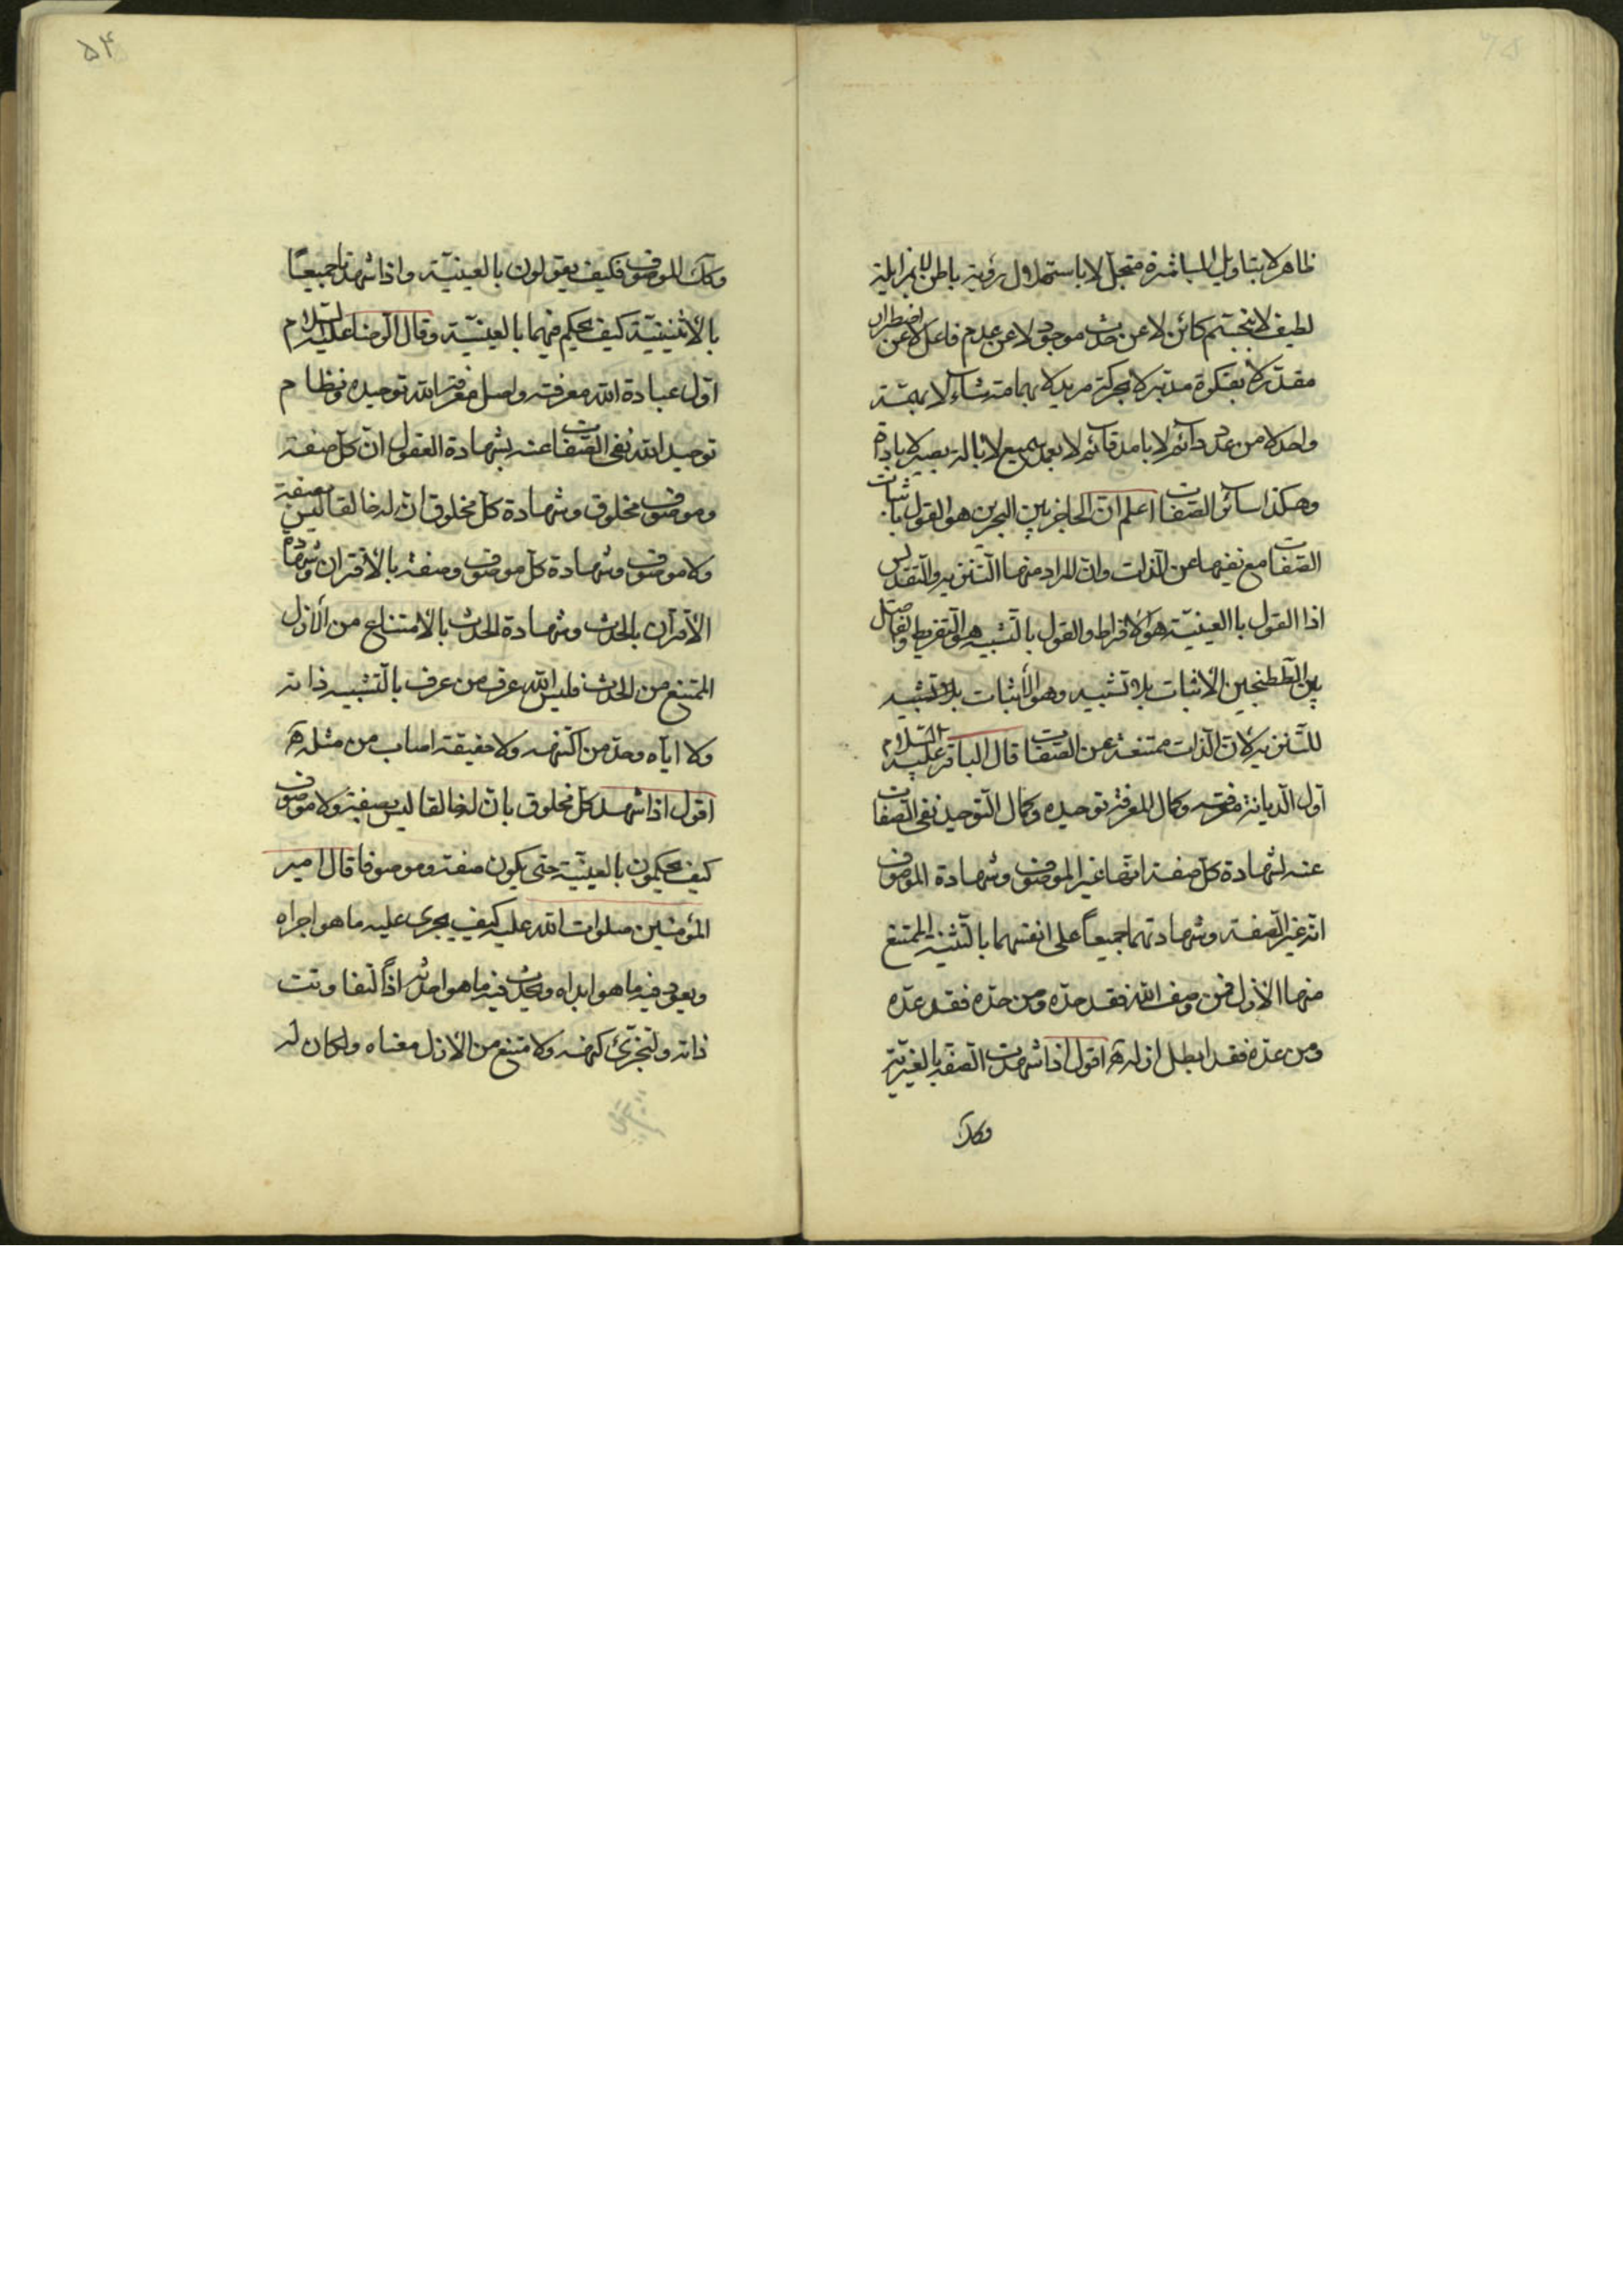 ظاهر لا بتاویل المباشرة متجل لا باستهلال رؤیة باطن لا بمزایلة
لطیف لا بتجسّم کائن لا عن حدث موجود لا عن عدم فاعل لا عن اضطرار
مقدّر لا بفکرة مدبّر لا بحرکة مرید لا بهمامة شاء لا بهمّة
واحد لا من عدد دائم لا بامد قائم لا بعمد سمیع لا بالة بصیر لا باداة
وهکذا سائر الصّفات اعلم انّ الحاجز بین البحرین هو القول باثبات
الصّفات مع نفیها عن الذّات وانّ المراد منها التّنزیه والتّقدیس
اذا القول با العینیّة هو الافراط والقول بالتّشبیه هو التّفریط والفاصل
بین الطّطنجین الاثبات بلا تشبیه وهو الاثبات بلا تشبیه
للتّنزیه لانّ الذّات ممتنعة عن الصّفات قال الباقر علیه السّلام
اوّل الدّیانة معرفته وکمال المعرفة توحیده وکمال التّوحید نفی الصّفات
عنه لشهادة کلّ صفة انّها غیر الموصوف وشهادة الموصوف
انّه غیر الصّفة وشهادتهما جمیعاً علی انفسهما بالتّثنیة الممتنع
منها الازل فمن وصف الله فقد حدّه ومن حدّه فقد عدّه
ومن عدّه فقد ابطل ازله اقول اذا شهدت الصّفة بالغیریّة
وکذا
۵۴
وکذا الموصوف فکیف یقولون بالعینیّة واذا شهدتا جمیعاً
بالاثنینیّة کیف یحکم فیهما بالعینیّة وقال الرّضا علیه السّلام
اوّل عبادة الله معرفته واصل معرفة الله توحیده ونظام
توحید الله نفی الصّفات عنه بشهادة العقول انّ کلّ صفة
وموصوف مخلوق وشهادة کلّ مخلوق انّ له خالقا لیس بصفة
ولا موصوف وشهادة کلّ موصوف وصفة بالاقتران وشهادة
الاقتران بالحدث وشهادة الحدث بالامتناع من الازل
الممتنع من الحدث فلیس الله عرف من عرف بالتّشبیه ذاته
ولا ایّاه وحّد من اکتنهه ولا حقیقة اصاب من مثّله
اقول اذا شهد کلّ مخلوق بانّ له خالقا لیس بصفة ولا موصوف
کیف یحکمون بالعینیّة حتی یکون صفة وموصوفا قال امیر
المؤمنین صلوات الله علیه کیف یجری علیه ما هو اجراه
ویعود فیه ما هو ابداه ویحدث فیه ما هو احدثه اذاً لتفاوتت
ذاته ولتجزّئ کنهه ولامتنع من الازل معناه ولکان له